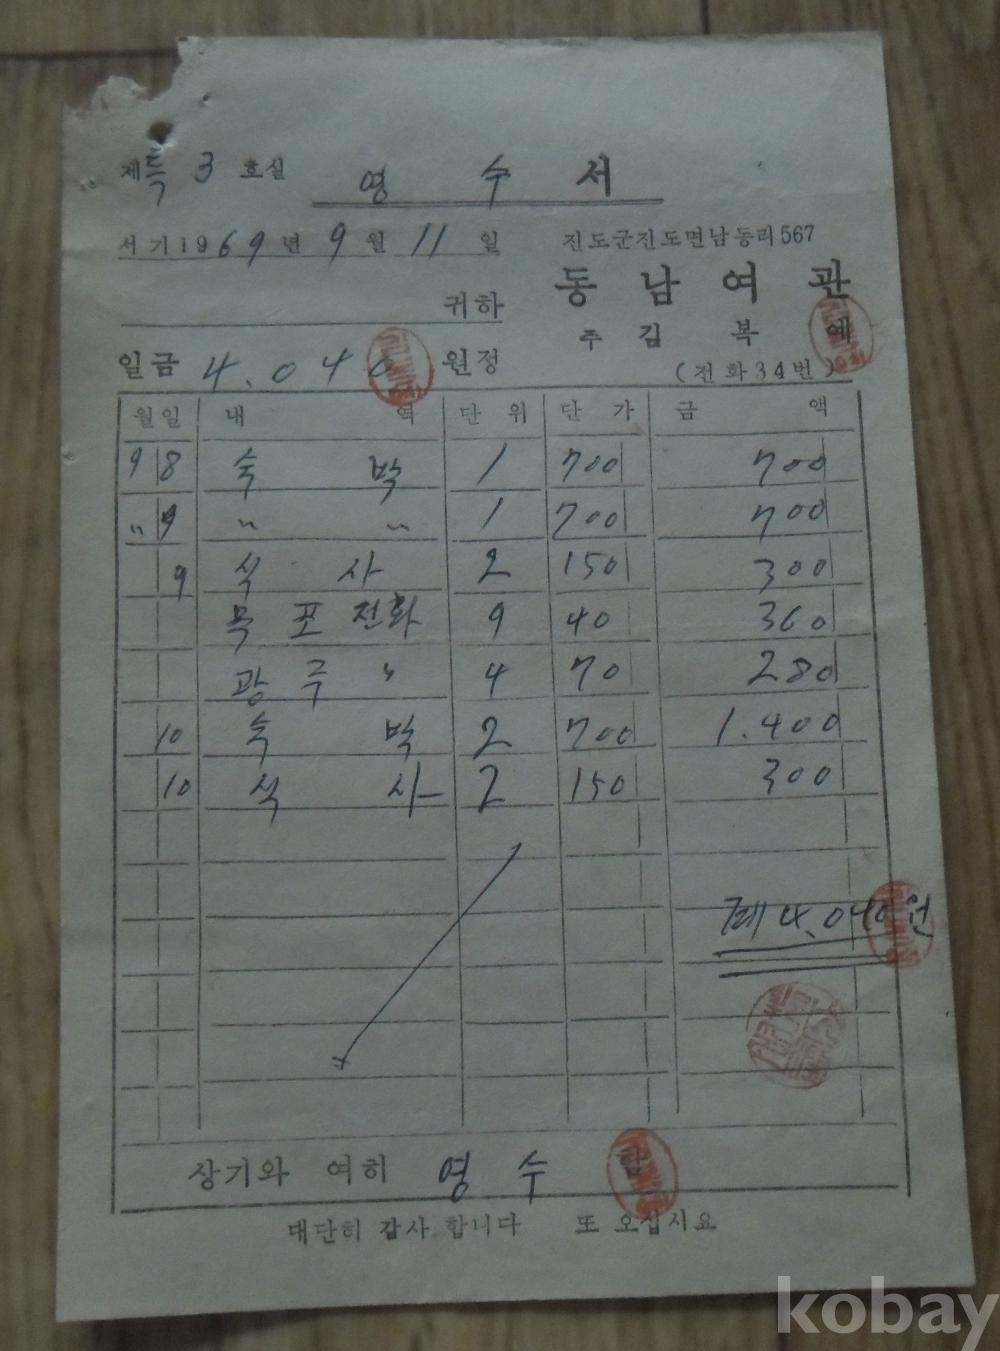 제 특 3 호실 영 수 서
서기 1969 년 9 월 11 일
진도군진도면남동리 567
동 남 여 관
귀하
주 김 복 예
일금 4.040 원정
(전화 34번)
월일 내 역 단 위 단 가 금 액
9 8 숙 박 1 700 700
〃 9 〃 〃 1 700 700
9 식 사 2 150 300
목 포 전화 9 40 360
광 주 〃 4 70 280
10 숙 박 2 700 1.400
10 식 사 2 150 300
계 4.040 원
상기와 여히 영 수 함
대단히 감사 합니다 또 오십시요
kobay